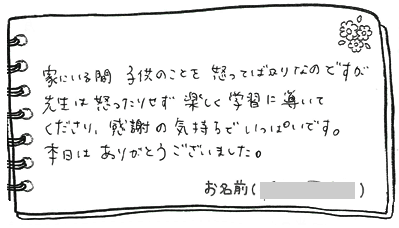 家にいる間 子供のことを 怒ってばかりなのですが
先生は怒ったりせず 楽しく学習に導いて
くださり、感謝の気持ちでいっぱいです。
本日は ありがとうございました。
お名前( )